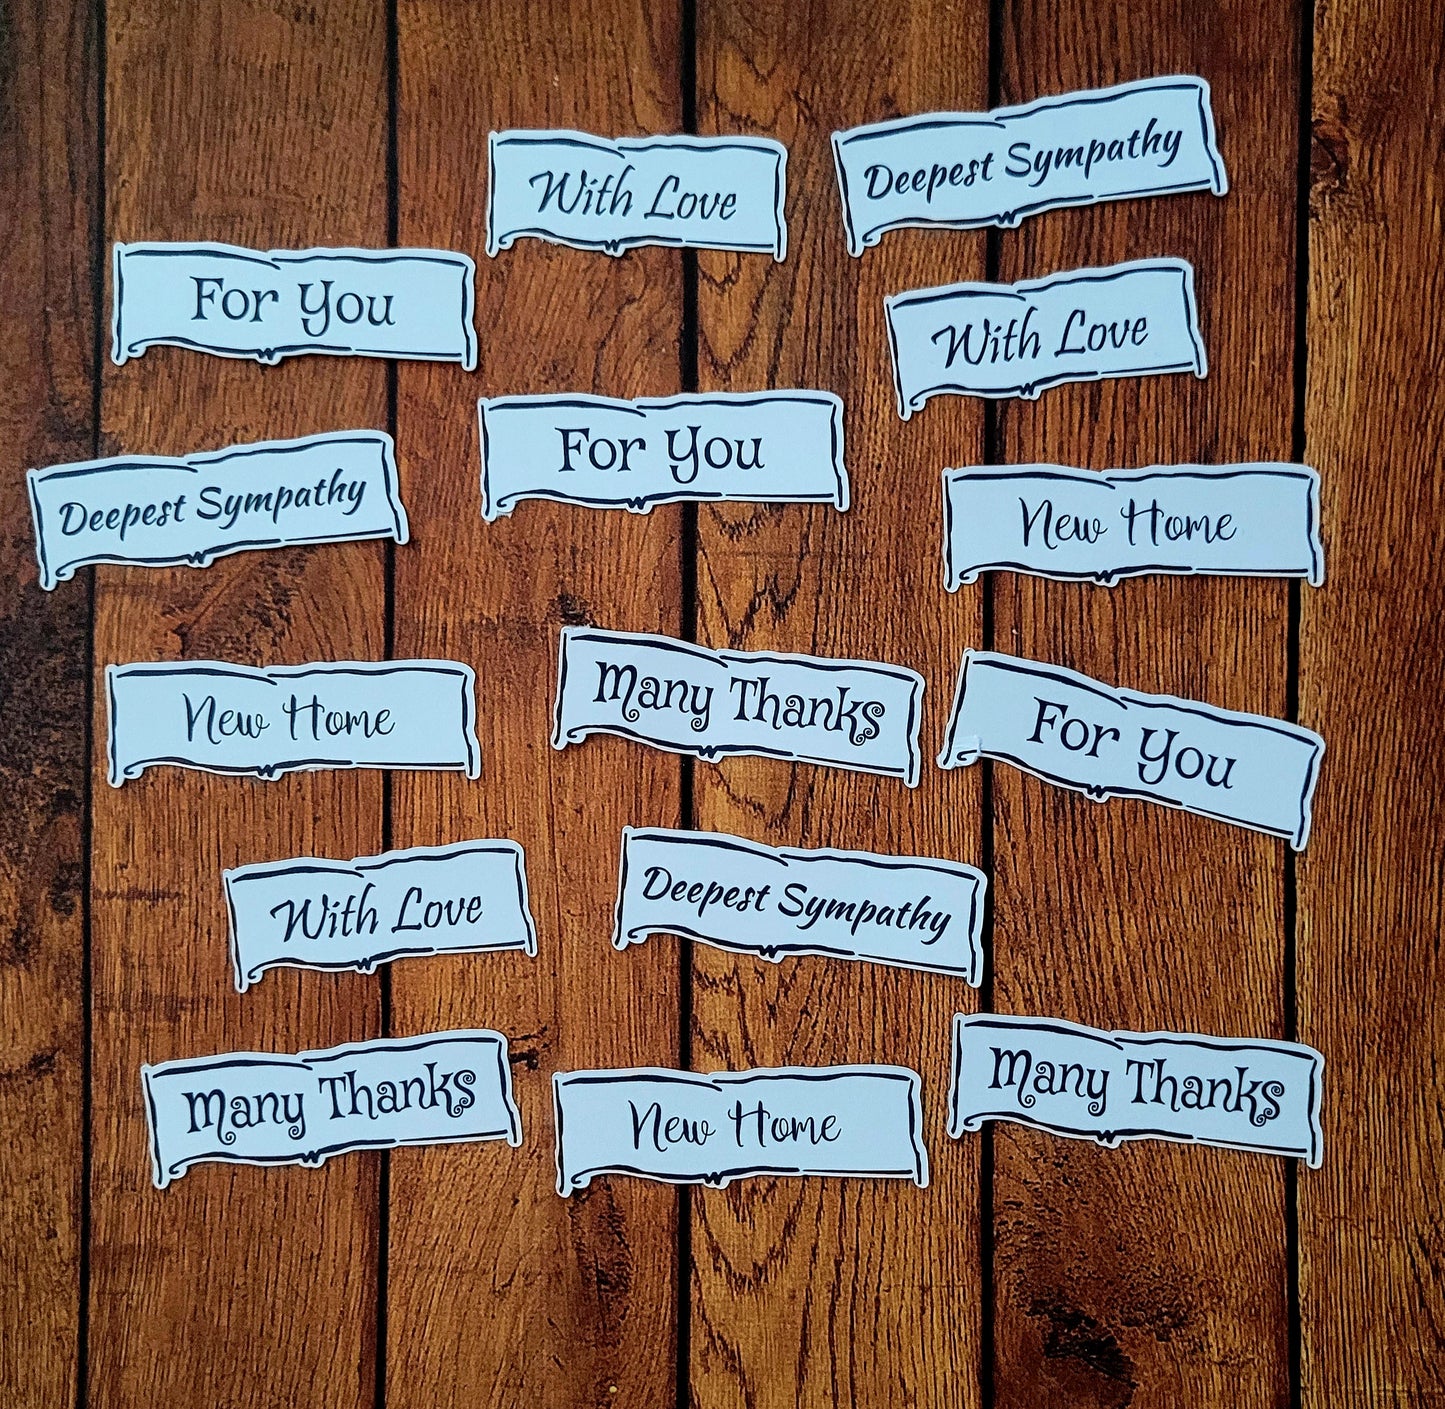 With Love
Deepest Sympathy
For You
With Love
For You
Deepest Sympathy
New Home
New Home
Many Thanks
For You
With Love
Deepest Sympathy
Many Thanks
New Home
Many Thanks